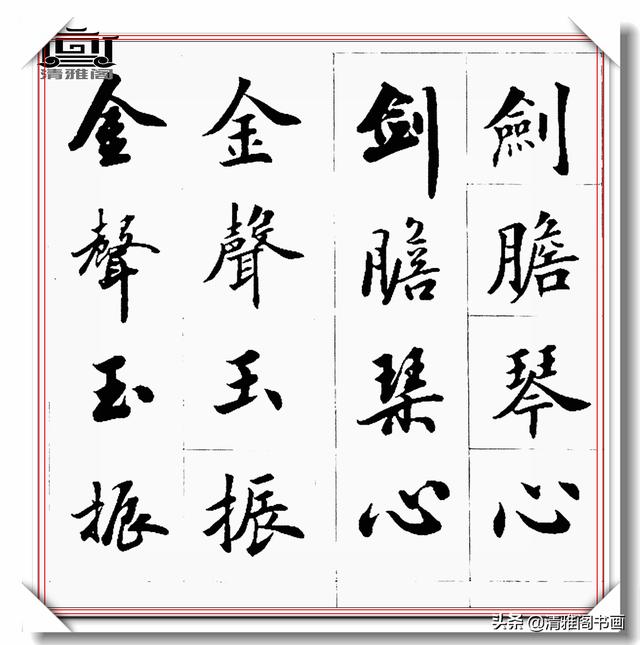 劍膽琴心
劍膽琴心
金聲玉振
金聲玉振
清雅阁
头条 @清雅阁书画